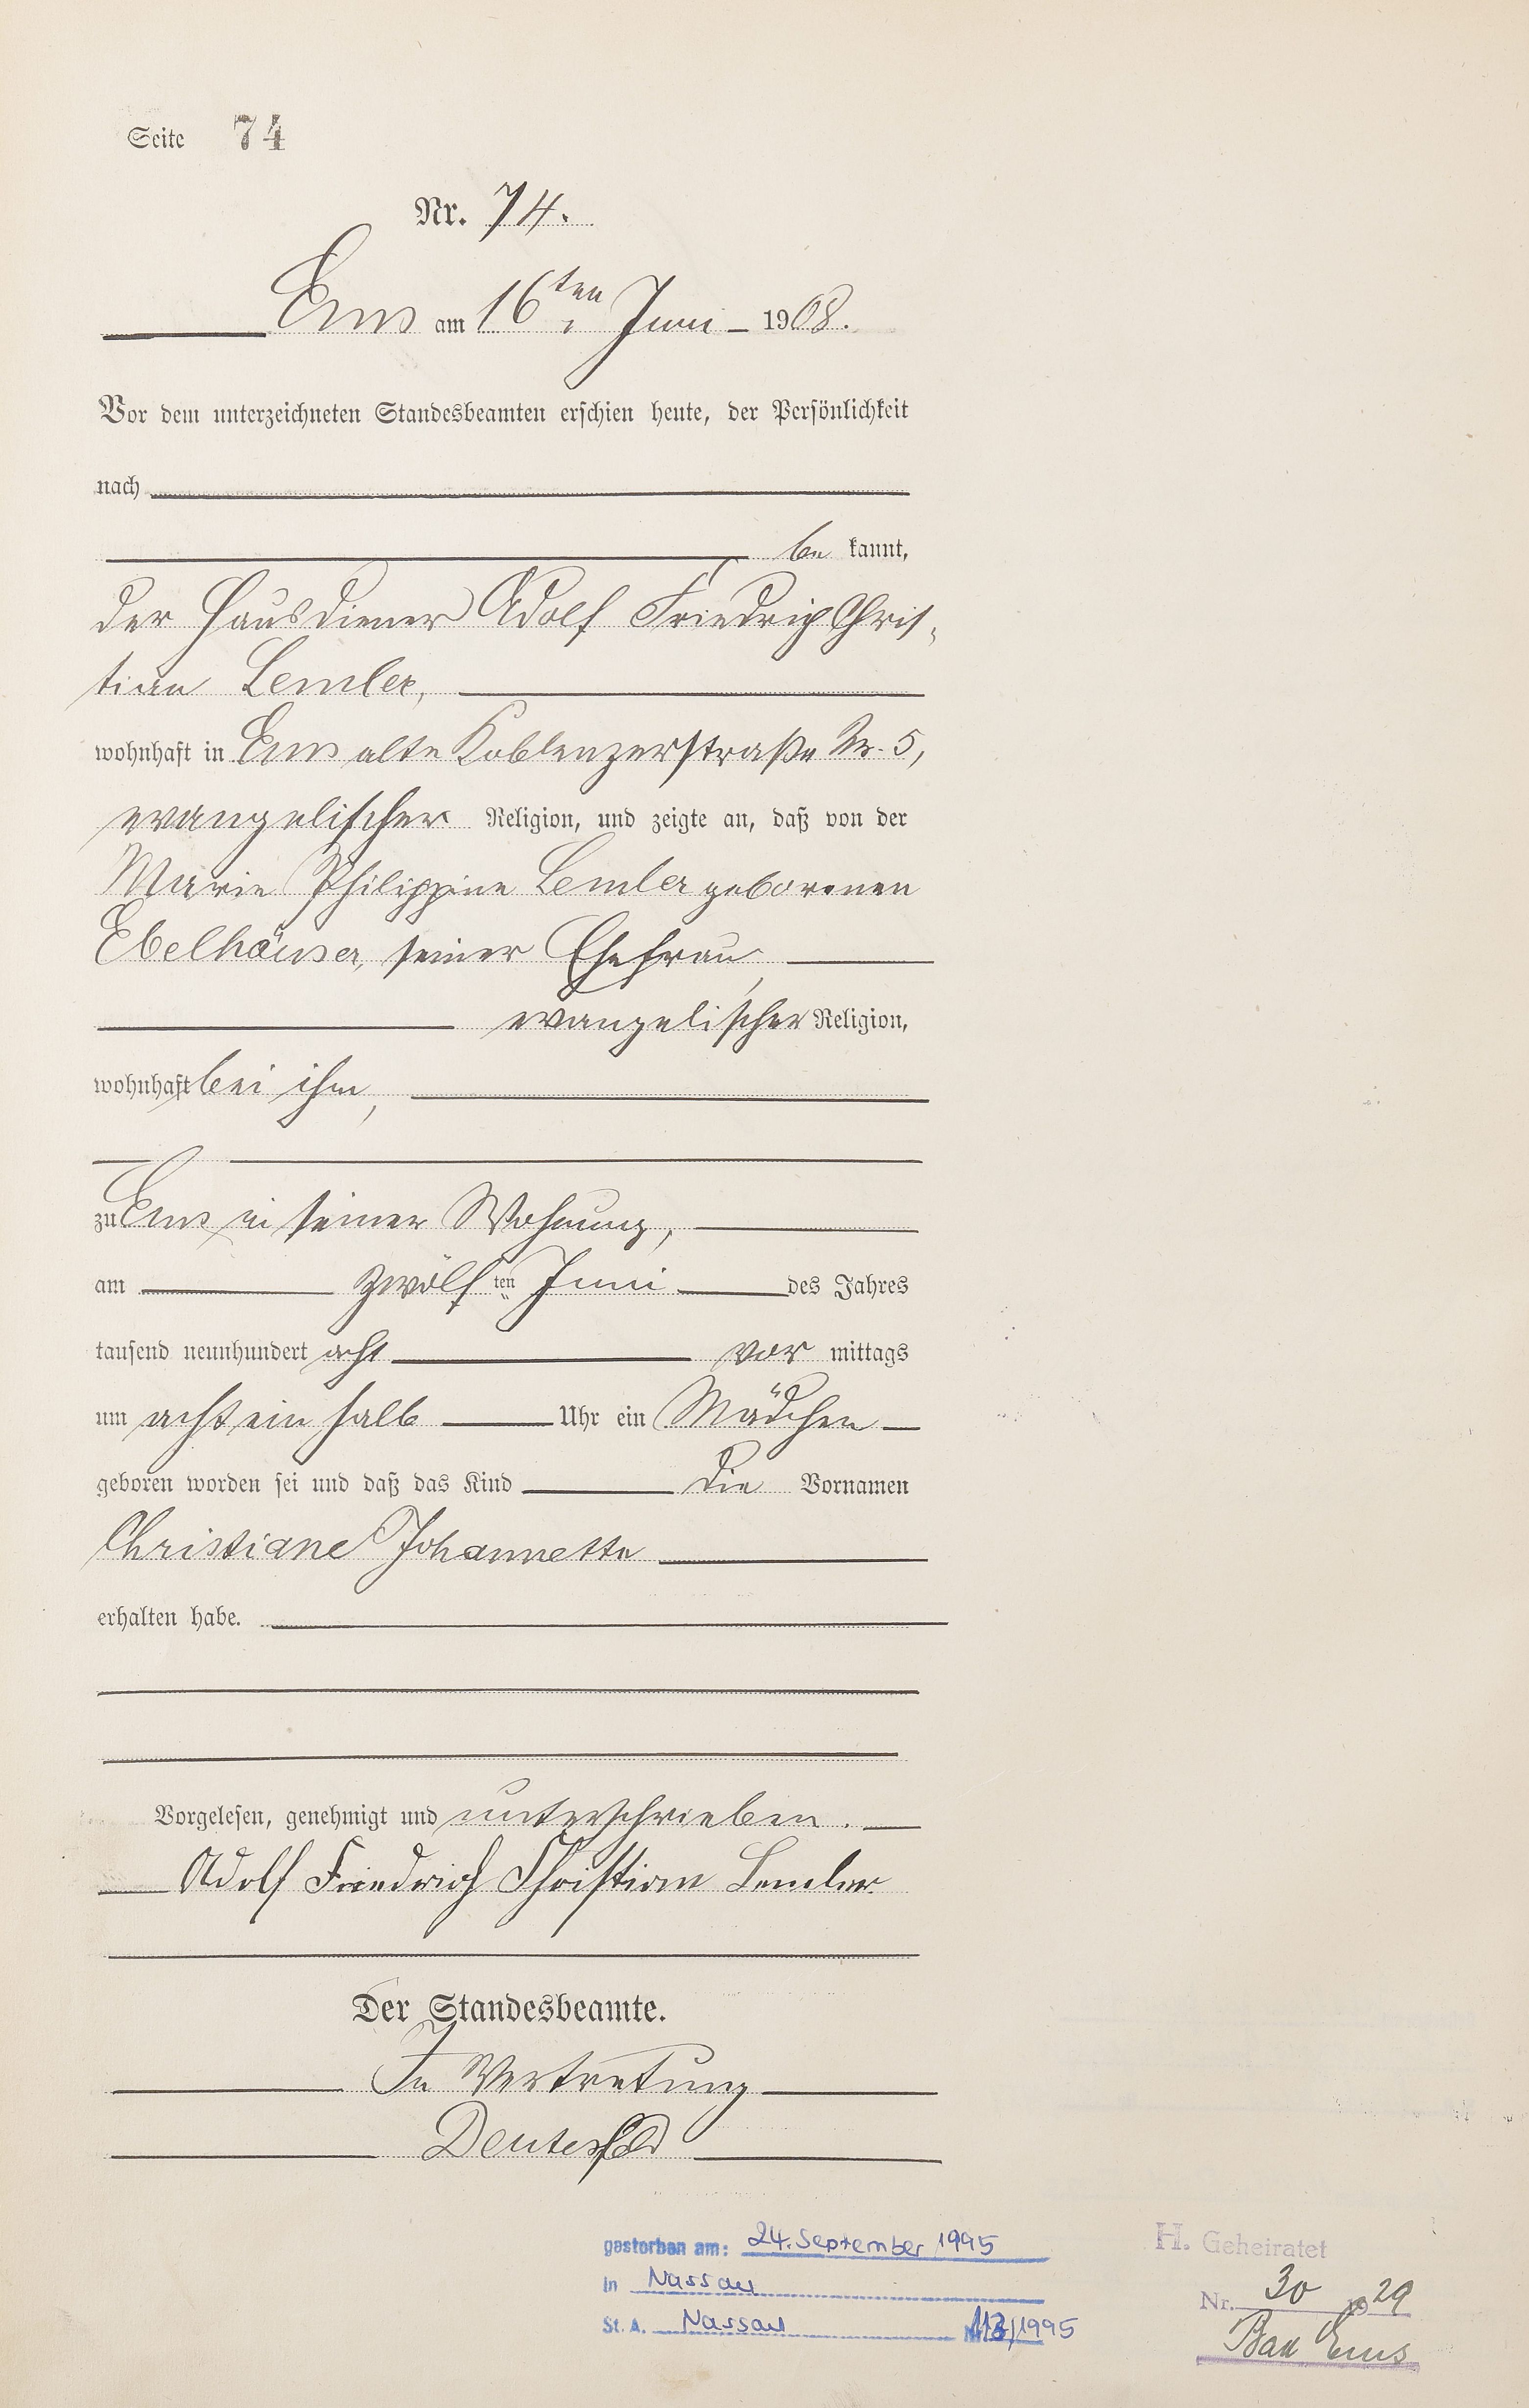 Seite 74
Nr. 74.
Ems am 16ten Juni 1908.
Vor dem unterzeichneten Standesbeamten erschien heute, der Persönlichkeit
nach
be kannt,
der Hausdiener Adolf Friedrich Chris-
tian Lemler,
wohnhaft in Ems alte Koblenzerstraße Nr. 5,
evangelischer Religion, und zeigte an, daß von der
Marie Philippine Lemler geborenen
Ebelhäuser, seiner Ehefrau,
evangelischer Religion,
wohnhaft bei ihm,
zu Ems in seiner Wohnung,
am zwölf ten Juni des Jahres
tausend neunhundert acht vor mittags
um acht ein halb Uhr ein Mädchen
geboren worden sei und daß das Kind die Vornamen
Christiane Johannette
erhalten habe.
Vorgelesen, genehmigt und unterschrieben.
Adolf Friedrich Christian Lemler
Der Standesbeamte.
In Vertretung
gestorben am: 24. September 1995
in Nassau
St. A. Nassau /1995
H. Geheiratet
Nr. 30 1929
Bad Ems